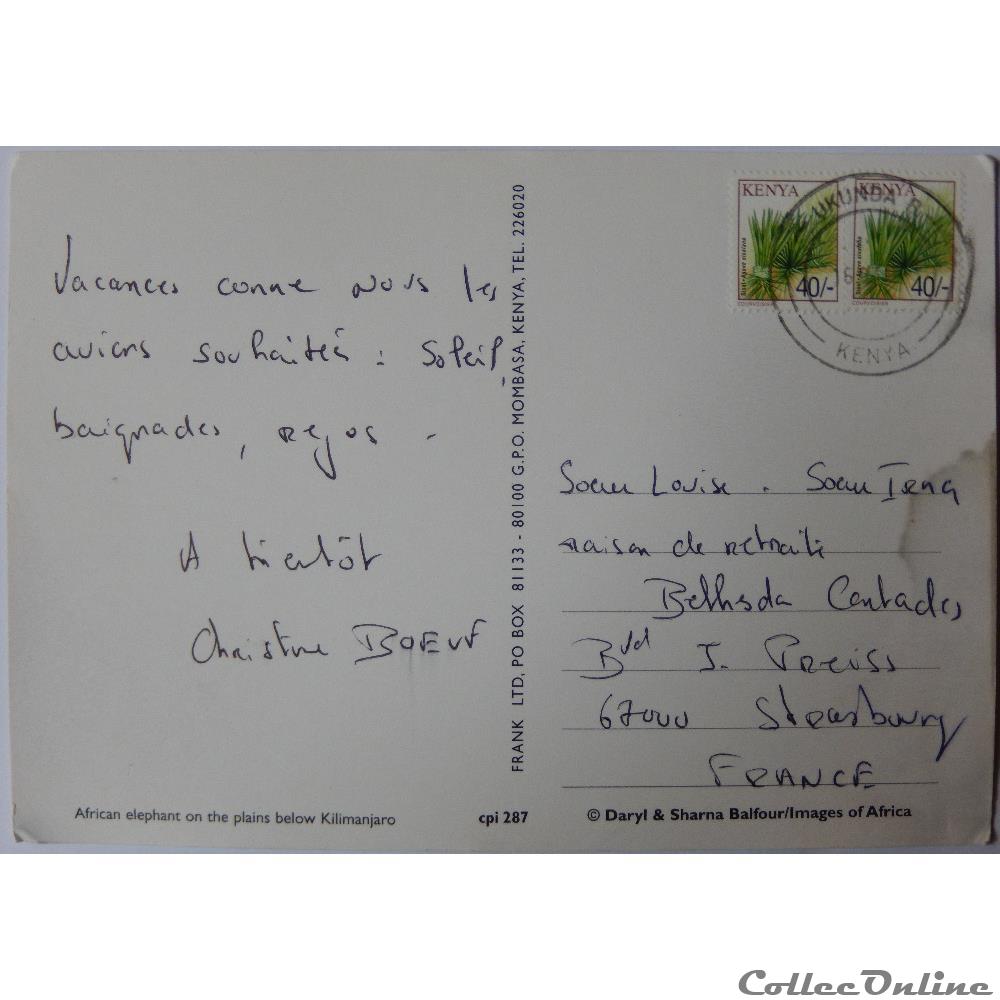 Vacances comme nous les
avions souhaités : Soleil,
baignades, repos -
A bientôt
Christine BOEUF
FRANK LTD, PO BOX 81133 - 80100 G.P.O. MOMBASA, KENYA, TEL. 226020
KENYA
40/-
COURVOISIER
KENYA
40/-
COURVOISIER
UKUNDA
KENYA
Soeur Louise . Soeur Irena
maison de retraite
Bethesda Contades
Bvd J. Preiss
67000 Strasbourg
FRANCE
African elephant on the plains below Kilimanjaro
cpi 287
© Daryl & Sharna Balfour/Images of Africa
CollecOnline